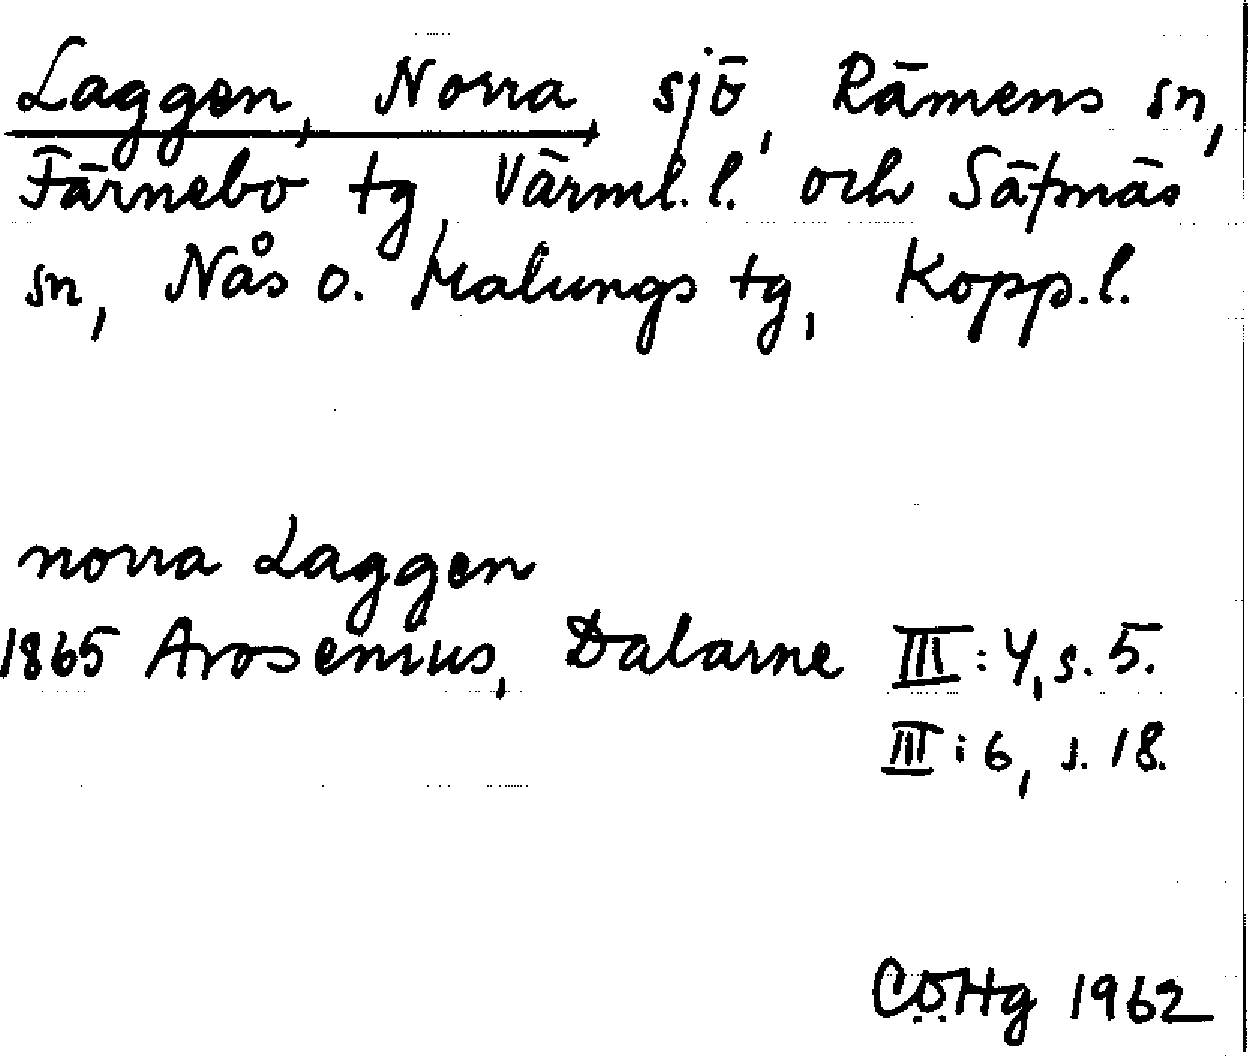 Laggen, Norra, sjö, Rämens sn,
Färnebo tg, Värml.l. och Säfsnäs
sn, Nås o. Malungs tg, Kopp.l.
norra Laggen
1865 Arosenius, Dalarne III: 4, s. 5.
III: 6, s. 18.
CÖHg 1962